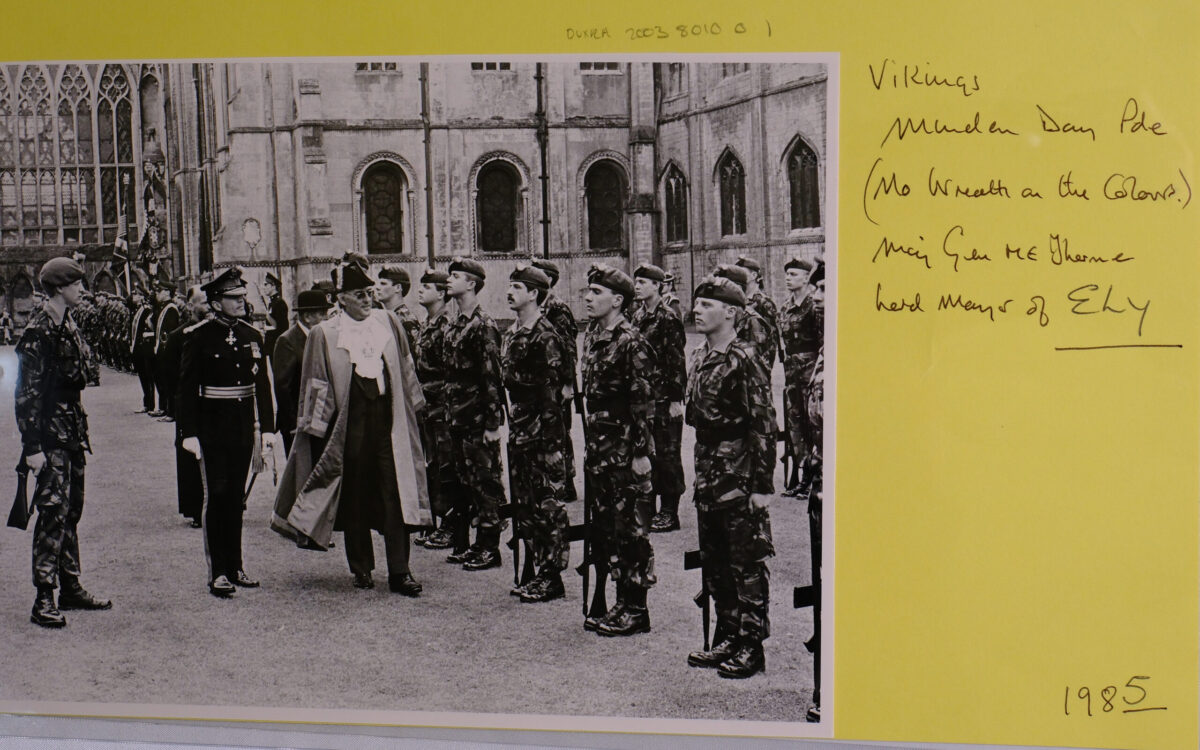 DUXRA 2003 8010 0 1
Vikings
Minden Day Pde
(No Wreath on the Colours.)
Maj Gen ME Thorne
Lord Mayor of ELY
1985